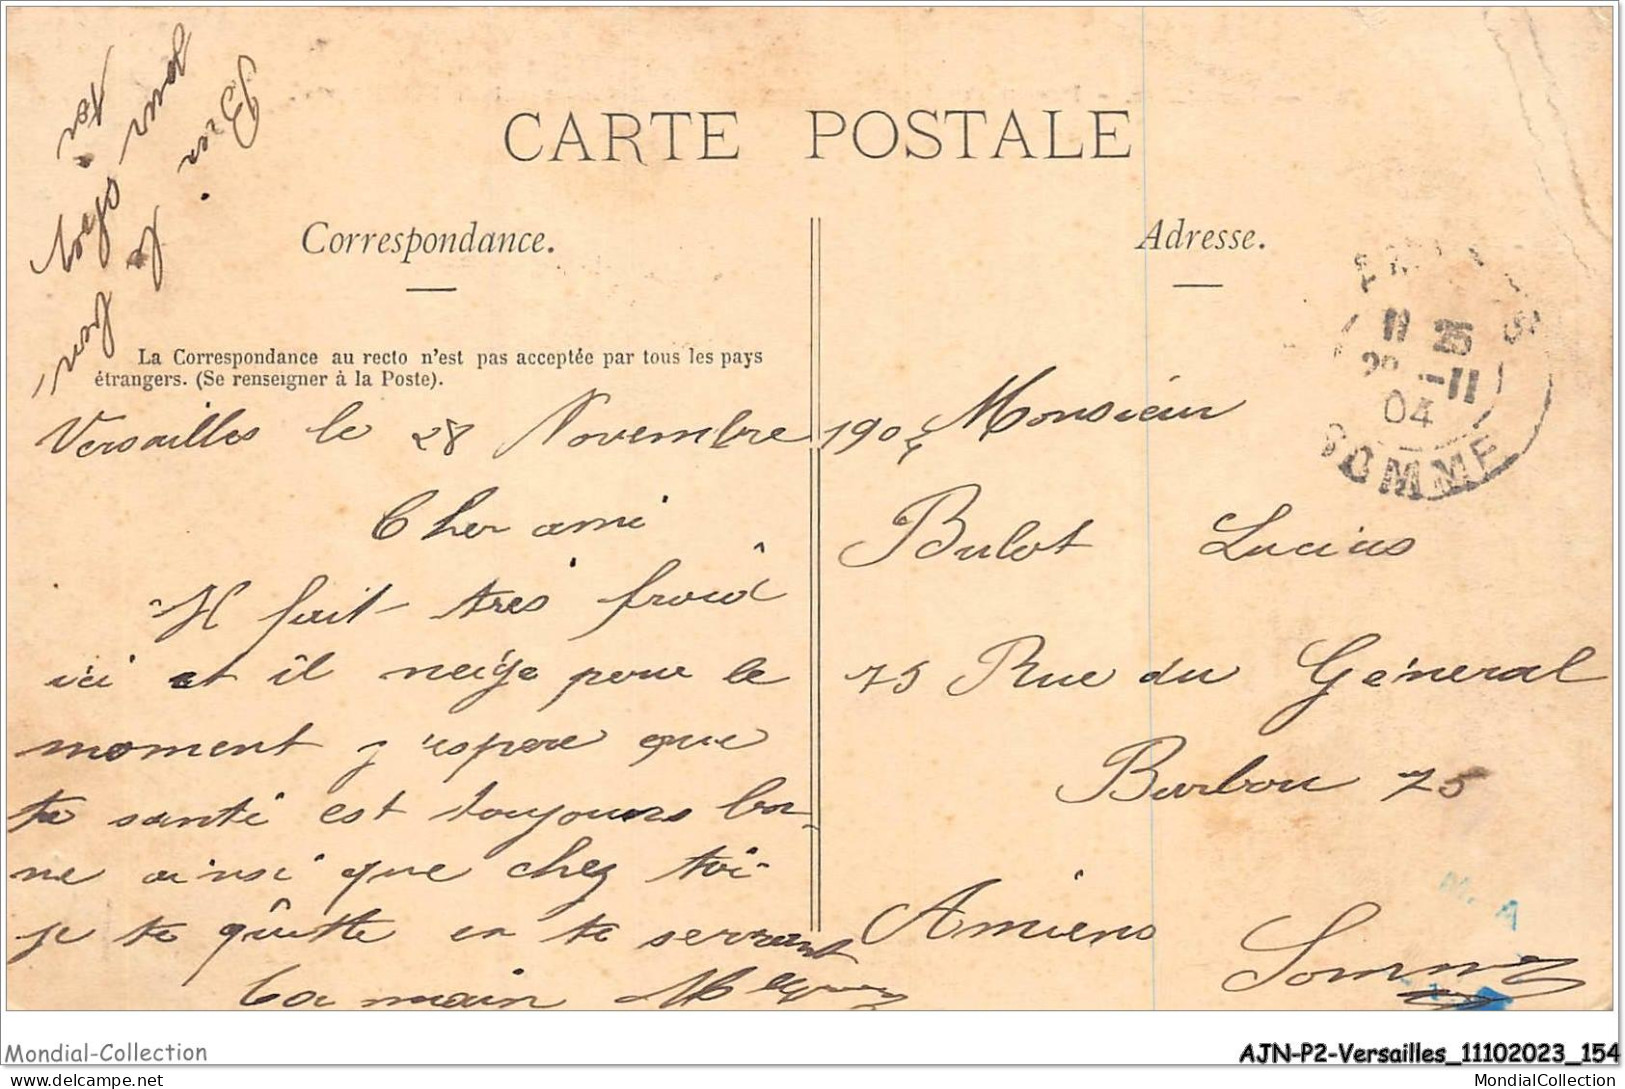 CARTE POSTALE
Correspondance.
Adresse.
La Correspondance au recto n'est pas acceptée par tous les pays
étrangers. (Se renseigner à la Poste).
Versailles le 28 Novembre 1904
Cher ami
Il fait très froid
ici et il neige pour le
moment j'espere que
ta santé est toujours bon-
ne ainsi que chez toi
je te quitte en te serrant
la main
Bien
pour
Monsieur
Bulot Lucius
75 Rue du Géneral
Burbou 75
Amiens
Somme
11 25
28 -11
04
SOMME
Mondial-Collection
AJN-P2-Versailles_11102023_154
delcampe.net
MondialCollection